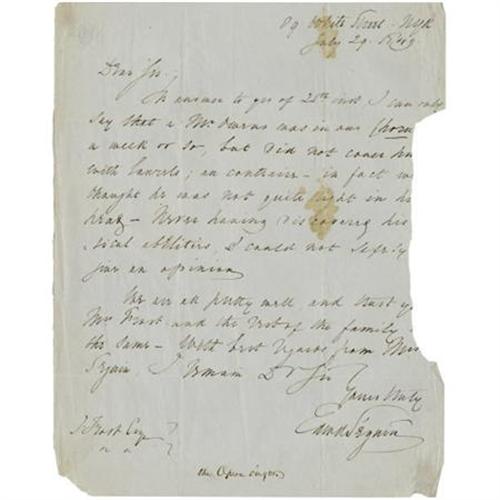 89 White Street - NYk
July 29. 1849
Dear Sir,
In answer to yrs of 28th inst I can only
say that a Mr Owens was in our Chorus
a week or so, but did not cover him
with laurels; au contraire - in fact we
thought he was not quite right in his
head - Never having discovered his
sical abilities, I could not safely
give an opinion
We are all pretty well, and trust you
Mrs Frost and the rest of the family
the same - With best regards from Mrs
Seguin I remain Dr Sir
Yours truly
Edwd Seguin
J. Frost Esq
the Opera singer